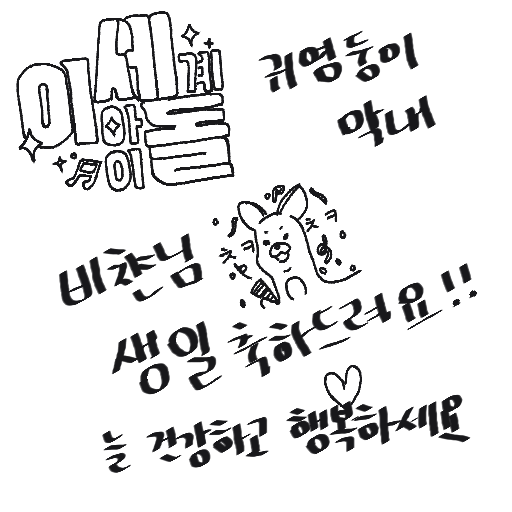 이세계아이돌
귀염둥이
막내
비챤님
ㅊㅋ ㅊㅋ
생일 축하드려요!!
늘 건강하고 행복하세요